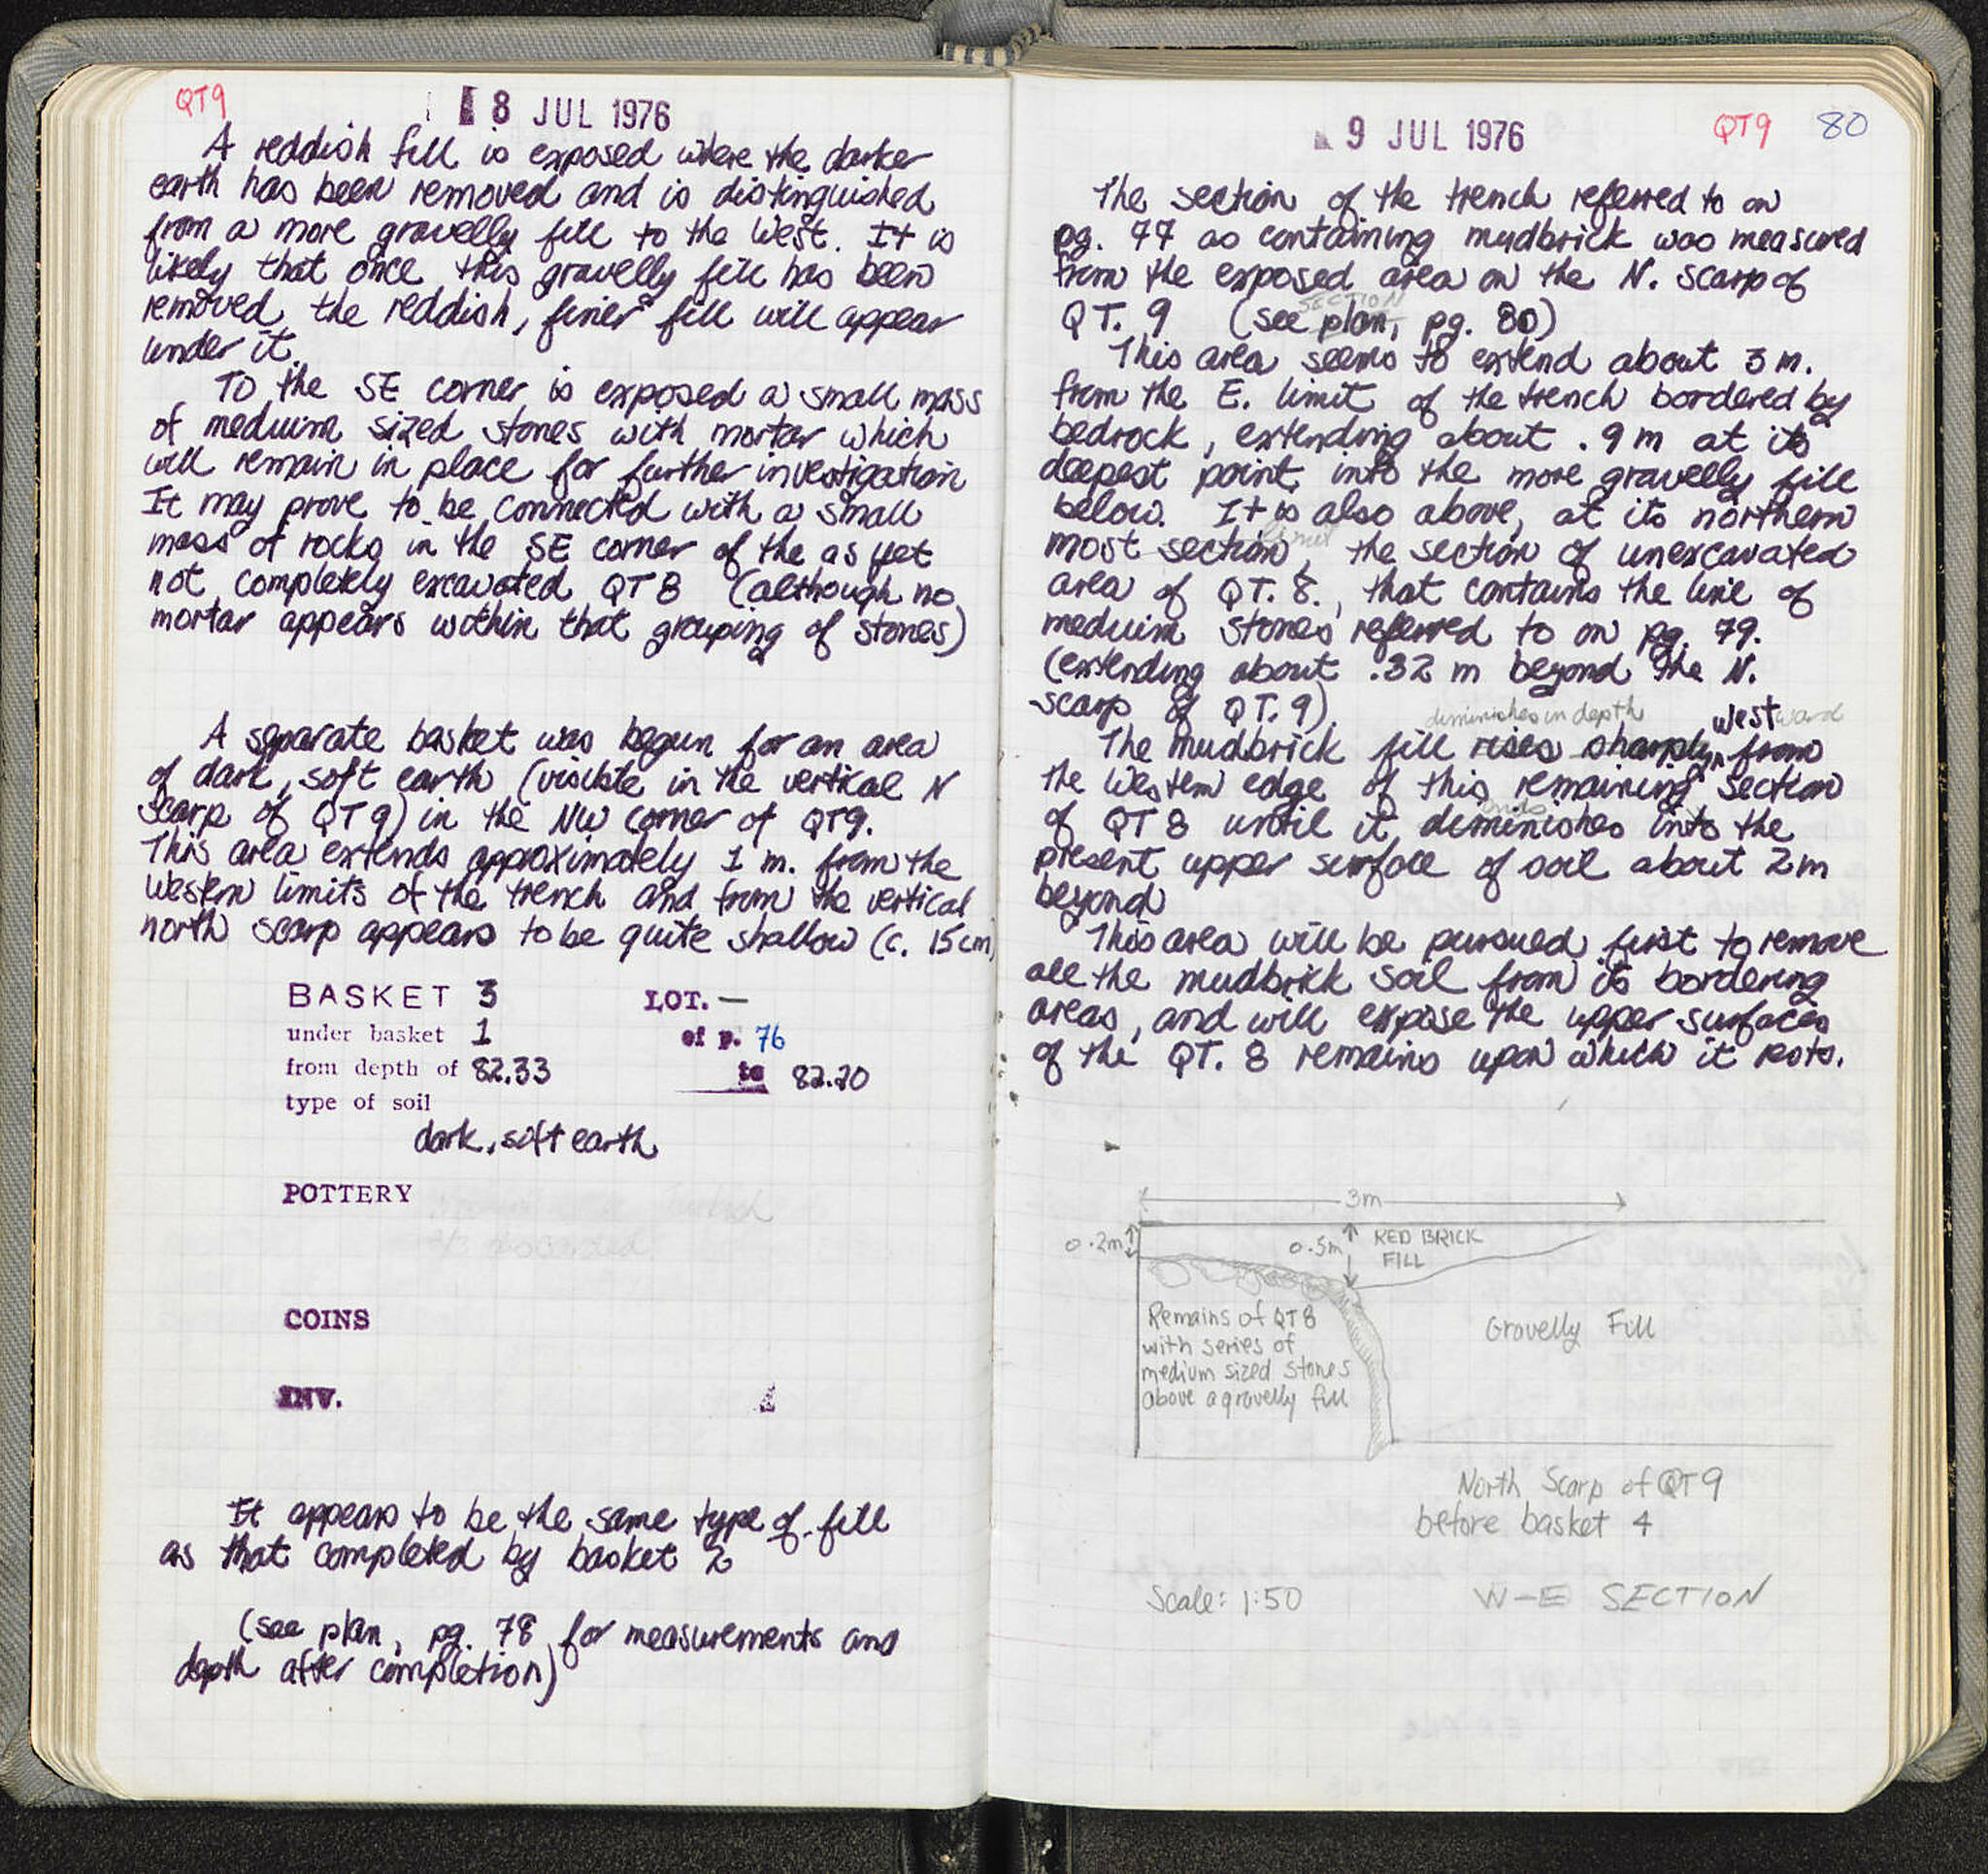 QT9
8 JUL 1976
A reddish fill is exposed where the darker
earth has been removed and is distinguished
from a more gravelly fill to the West. It is
likely that once this gravelly fill has been
removed, the reddish, finer fill will appear
under it.
To the SE corner is exposed a small mass
of meduim sized stones with mortar which
will remain in place for further investigation
It may prove to be connected with a small
mass of rocks in the SE corner of the as yet
not completely excavated QT8 (although no
mortar appears within that grouping of stones)
A separate basket was begun for an area
of dark, soft earth (visible in the vertical N
scarp of QT9) in the NW corner of QT9.
This area extends approximately 1 m. from the
Western limits of the trench and from the vertical
north scarp appears to be quite shallow (c. 15cm)
BASKET 3 LOT. —
under basket 1 of p. 76
from depth of 82.33 to 82.20
type of soil
dark, soft earth
POTTERY
COINS
INV.
It appears to be the same type of fill
as that completed by basket 2
(see plan, pg. 78 for measurements and
depth after completion)
9 JUL 1976
QT9 80
The section of the trench referred to on
pg. 77 as containing mudbrick was measured
from the exposed area on the N. scarp of
SECTION
QT. 9 (see plan, pg. 80)
This area seems to extend about 3 m.
from the E. limit of the trench bordered by
bedrock, extending about .9 m at its
deepest point into the more gravelly fill
below. It is also above, at its northern
limit
most section, the section of unexcavated
area of QT. 8., that contains the line of
meduim stones referred to on pg. 79.
(extending about .32 m beyond the N.
scarp of QT. 9).
diminishes in depth westward
The mudbrick fill rises sharply from
the Western edge of this remaining section
ends
of QT8 until it diminishes into the
present upper surface of soil about 2m
beyond
This area will be pursued first to remove
all the mudbrick soil from its bordering
areas, and will expose the upper surfaces
of the QT. 8 remains upon which it rests.
3m
0.2m
0.5m
RED BRICK
FILL
Remains of QT8
with series of
medium sized stones
above a gravelly fill
Gravelly Fill
North Scarp of QT9
before basket 4
Scale: 1:50
W-E SECTION